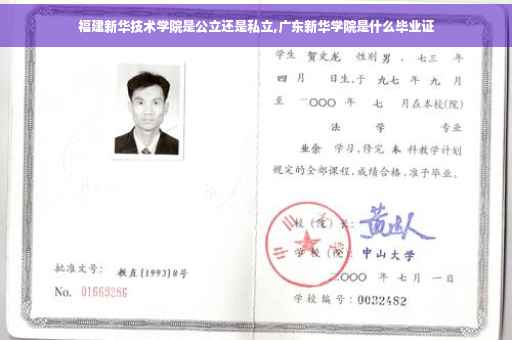 福建新华技术学院是公立还是私立,广东新华学院是什么毕业证
学生 贺文龙 性别 男 、七三 年
四 月 日生,于 九七 年 九 月
至 二〇〇〇 年 七 月在本校(院)
法 学 专业
业余 学习,修完 本 科教学计划
规定的全部课程,成绩合格,准予毕业。
校(院)长:
学校(院): 中山大学
二〇〇〇 年 七 月 一 日
批准文号: 教直(1993)8号
No. 01669286
学校编号: 0032482